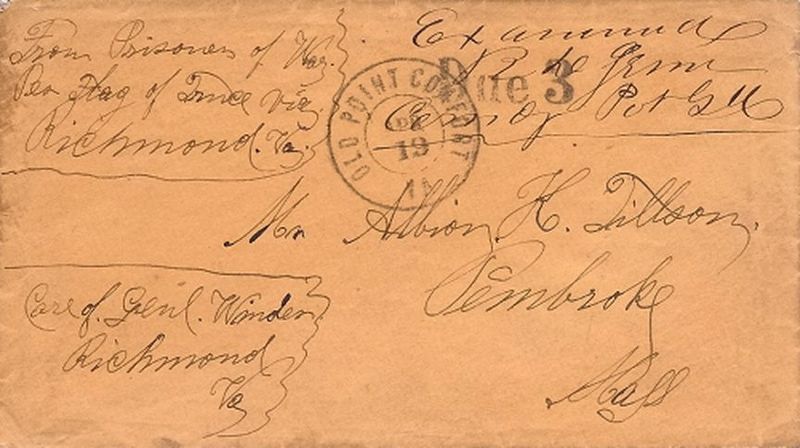 From Prisoner of War.
Per Flag of Truce via
Richmond. Va.
Examined
Comdg Post
OLD POINT COMFORT
DEC
19
Due 3
Mr Albion. K. Tillson.
Pembroke
Mass
Care of. Genl. Winder.
Richmond
Va